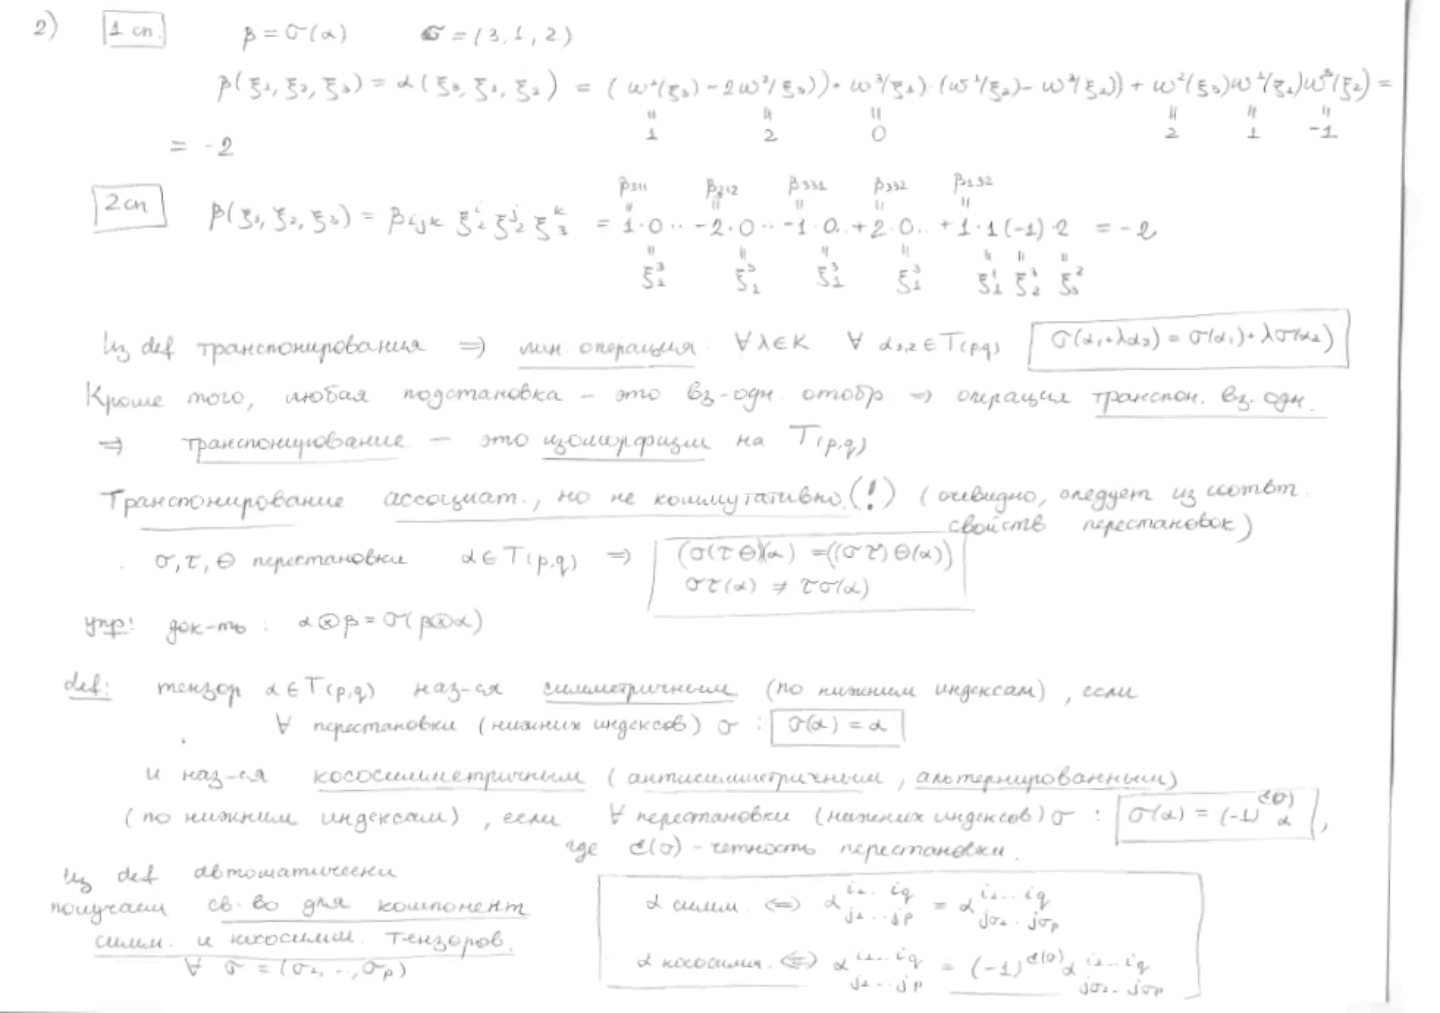 2) 1 сп. β = σ(α) σ = (3, 1, 2)
β(ξ₁, ξ₂, ξ₃) = α(ξ₃, ξ₁, ξ₂) = (ω¹(ξ₃) - 2ω²(ξ₃)) · ω³(ξ₁) · (ω¹(ξ₂) - ω³(ξ₂)) + ω²(ξ₃)ω¹(ξ₁)ω³(ξ₂) =
॥ ॥ ॥ ॥ ॥ ॥
1 2 0 2 1 -1
= -2
β₃₁₁ β₃₁₂ β₃₃₁ β₃₃₂ β₁₃₂
2 сп β(ξ₁, ξ₂, ξ₃) = βᵢⱼₖ ξ₁ⁱ ξ₂ʲ ξ₃ᵏ = 1·0·· -2·0·· -1·0·· +2·0·· +1·1(-1)·2 = -2
ξ₁³ ξ₁³ ξ₁³ ξ₁³ ξ₁¹ ξ₂³ ξ₃²
Из def транспонирования ⇒ лин. операция ∀ λ∈K ∀ α₁,₂ ∈ T(p,q) σ(α₁+λα₂) = σ(α₁)+λσ(α₂)
Кроме того, любая подстановка – это вз-одн. отобр. ⇒ операция транспон. вз. одн.
⇒ транспонирование – это изоморфизм на T(p,q)
Транспонирование ассоциат., но не коммутативно. (!) (очевидно, следует из соответ.
свойств перестановок)
σ, τ, θ перестановки α ∈ T(p,q) ⇒ (σ(τθ))(α) = ((στ)θ(α))
στ(α) ≠ τσ(α)
упр! док-ть: α⊗β = σ(β⊗α)
def: тензор α ∈ T(p,q) наз-ся симметричным (по нижним индексам), если
∀ перестановки (нижних индексов) σ : σ(α) = α
и наз-ся кососимметричным (антисимметричным, альтернированным)
(по нижним индексам), если ∀ перестановки (нижних индексов) σ : σ(α) = (-1)^ε(σ) α,
где ε(σ) - четность перестановки.
Из def автоматически
получаем св-во для компонент
симм. и кососимм. тензоров.
∀ σ = (σ₁, .., σₚ)
α симм. ⇔ α^{i₁..i_q}_{j₁..j_p} = α^{i₁..i_q}_{jσ₁..jσ_p}
α кососимм. ⇔ α^{i₁..i_q}_{j₁..j_p} = (-1)^ε(σ) α^{i₁..i_q}_{jσ₁..jσ_p}